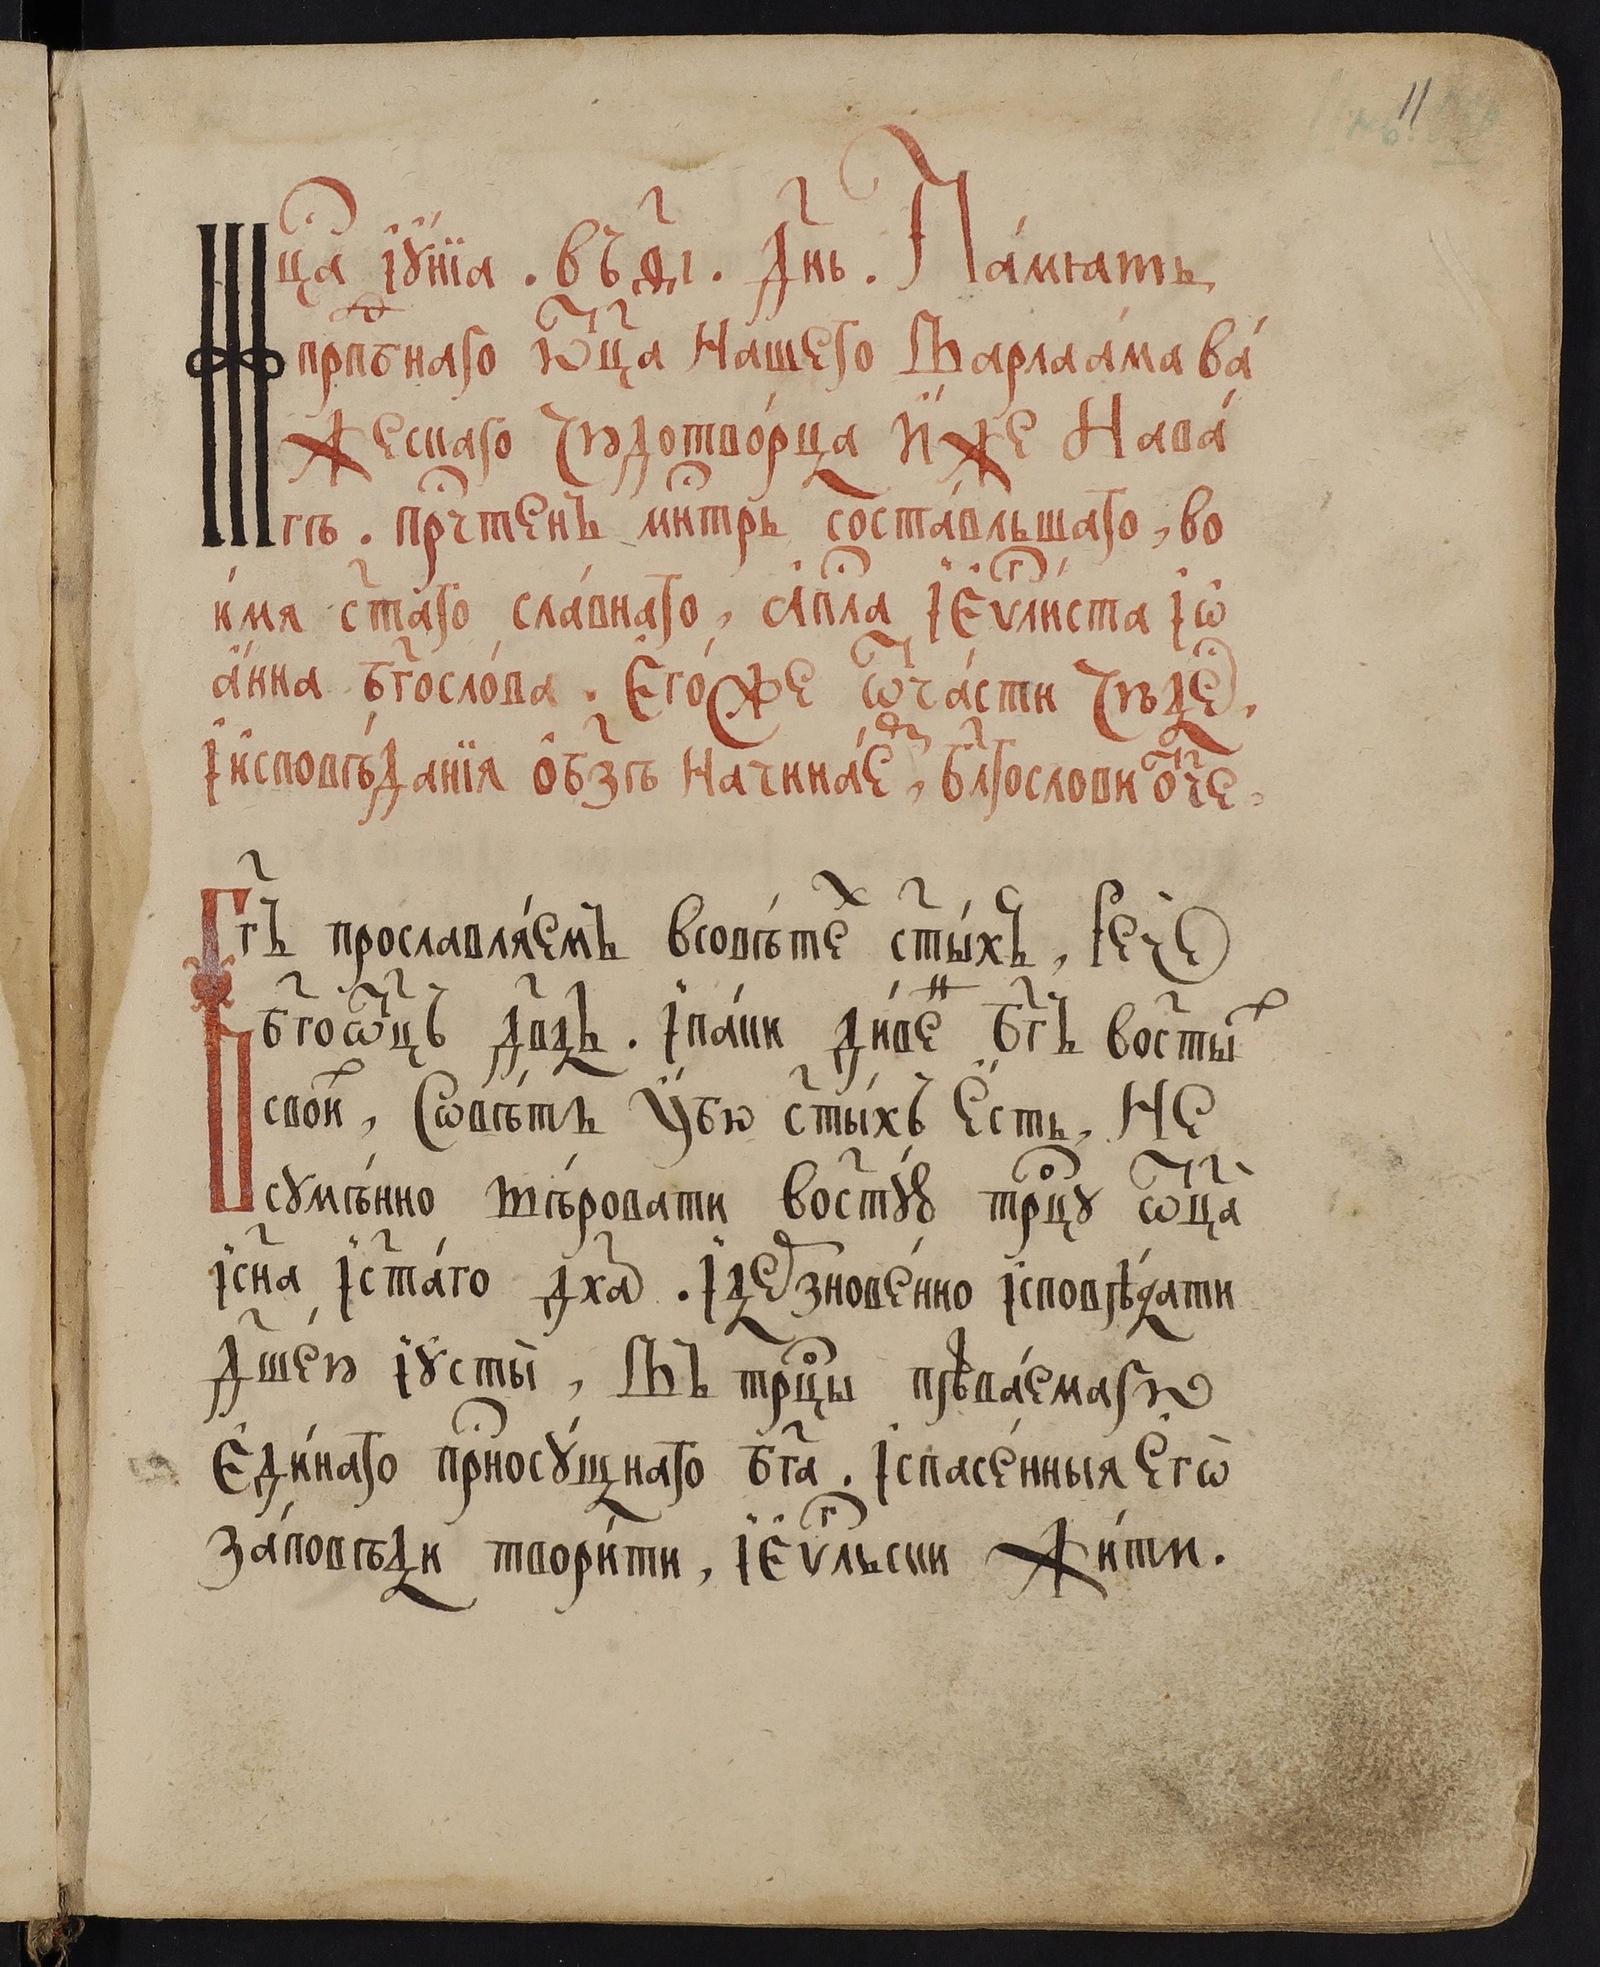 11
Мц҃а і҆ꙋ́нїа . въ д҃і . д҃нь . Па́мѧть
прпⷣбнаго ѻ҆ц҃а нашего Варлаа́ма ва́
жескаго чюдотво́рца и҆́же на ва́
гѣ . прⷭ҇чтенъ мⷭ҇тнрь соста́вльшаго , во
и́мя ст҃а́го сла́внаго , а҆пⷭ҇ла і҆ є҆ѵⷢ҇листа і҆ѡ
а́нна бг҃осло́ва . є҆го́же ѿ ча́сти чюде́ ,
і҆ и҆сповѣ́данїя о҆бр҃зѣ начина́еⷨ , бл҃гослови ѻ҆́ч҃е .
Бг҃ъ прославля́емъ в совѣ́те ст҃ы́хъ , рече́
бг҃оѻц҃ъ дв҃дъ . і҆ па́ки ди́веⷩ бг҃ъ во ст҃ыⷯ
своиⷯ , Совѣ́тъ ᲂу҆́бо ст҃ы́хъ є҆́сть , не
сумѣ́нно вѣ́ровати во ст҃у́ю трⷪ҇цу ѻ҆ц҃а
і҆ сн҃а і҆ ст҃а́го дх҃а . і҆ дерзнове́нно і҆сповѣ́дати
дш҃е́ю і҆ ᲂу҆сты̀ , въ трⷪ҇цы пѣва́емаго
є҆ди́наго прⷭ҇носу́щнаго бг҃а . і҆ спасе́нныя є҆гѡ̀
за́повѣди твори́ти , і҆ є҆ѵⷢ҇льски жи́ти .